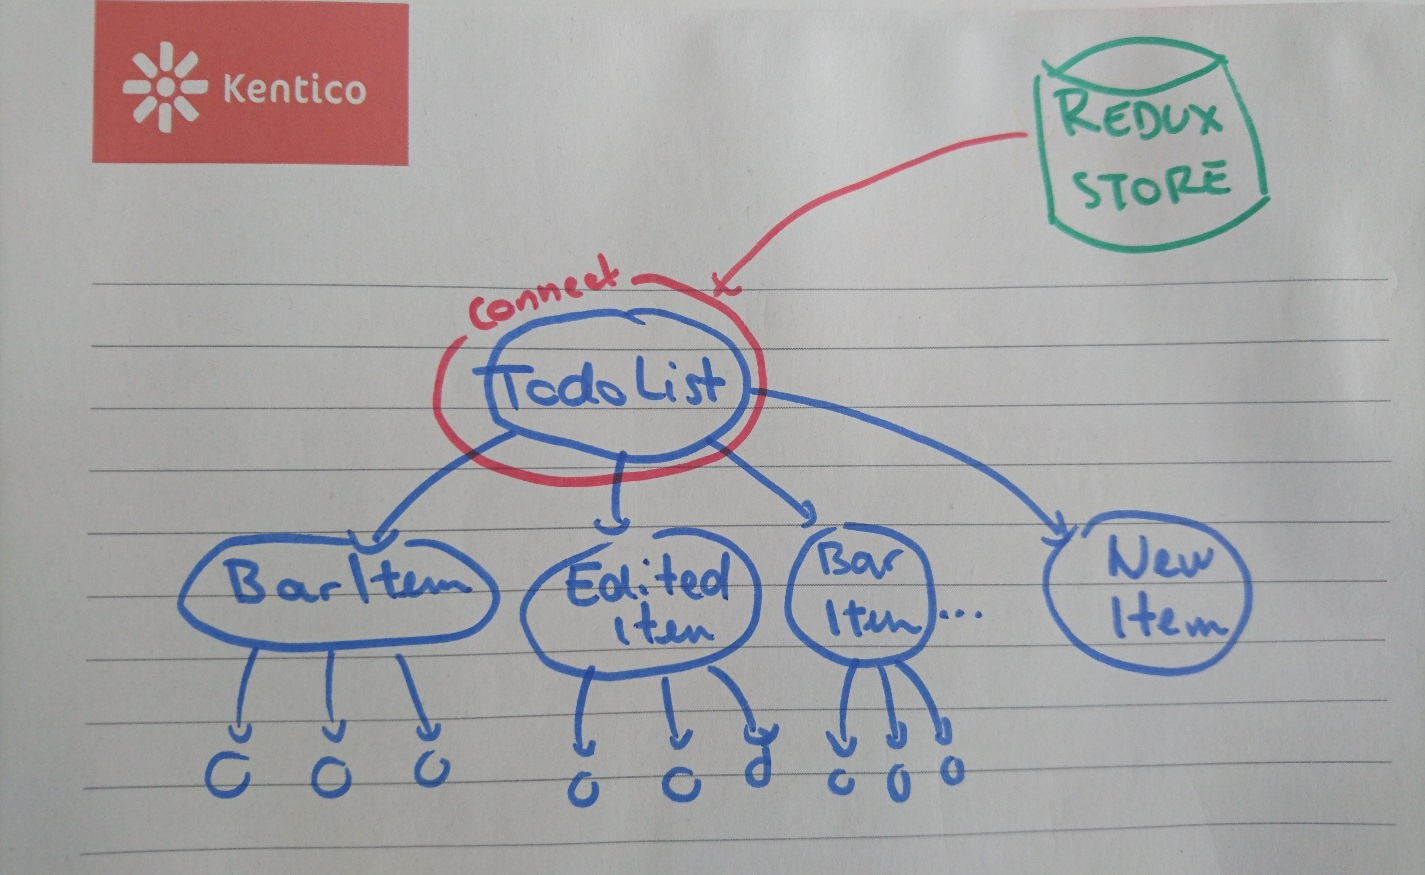 Kentico
REDUX
STORE
connect
TodoList
BarItem
Edited
Item
Bar
Item
...
New
Item